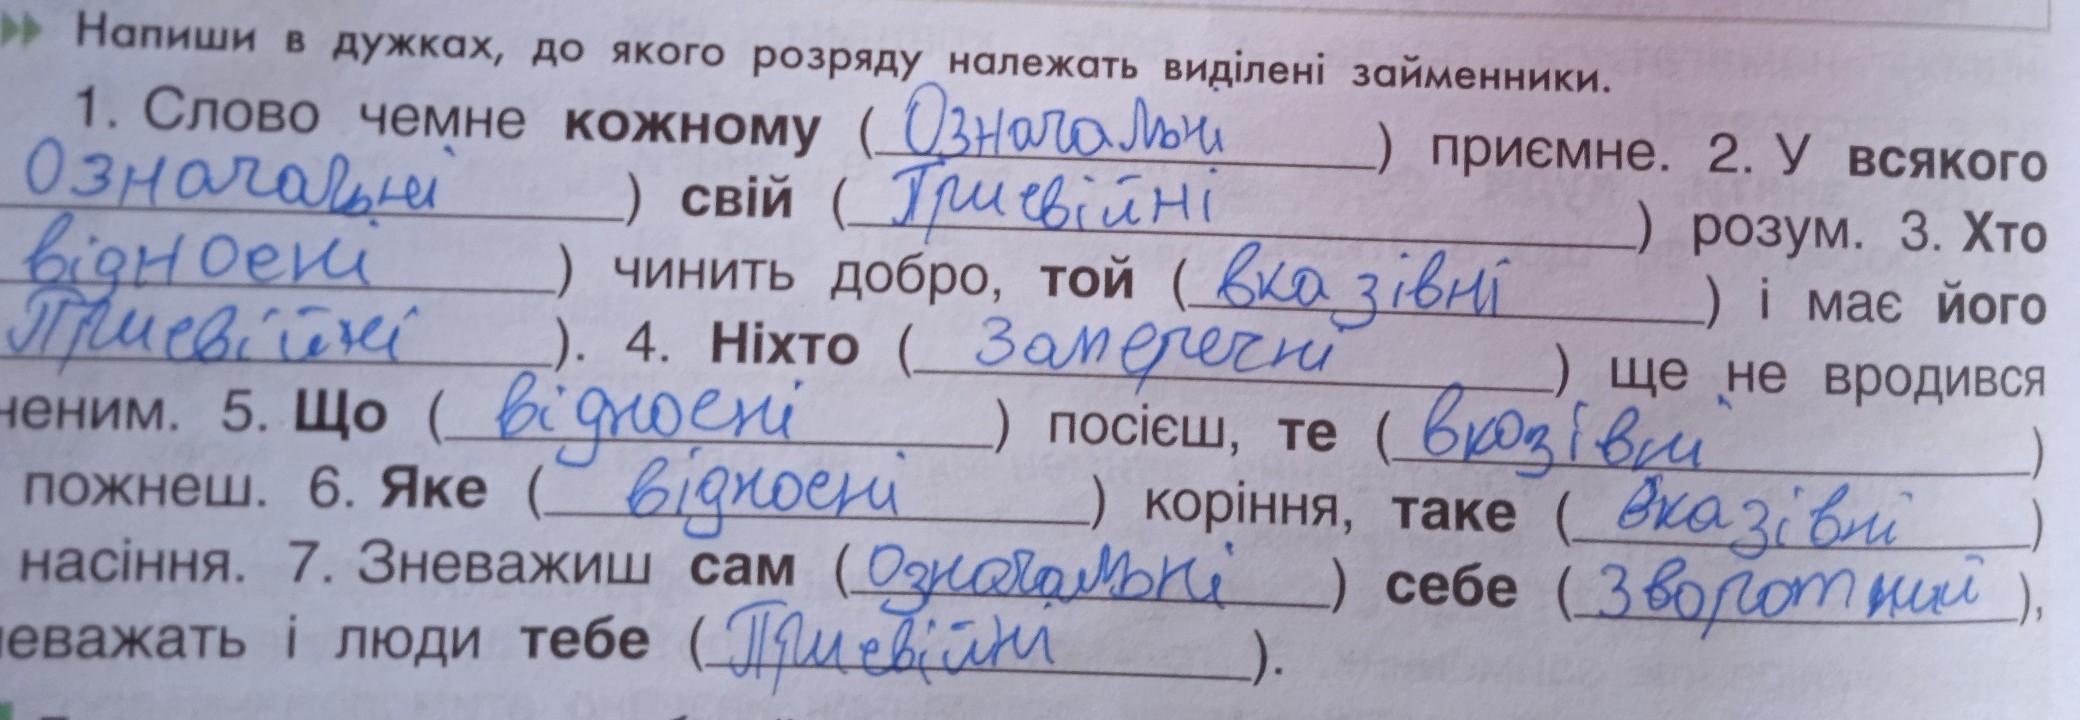 Напиши в дужках, до якого розряду належать виділені займенники.
1. Слово чемне кожному (Означальні) приємне. 2. У всякого
Означальні) свій (Присвійні) розум. 3. Хто
відносні) чинить добро, той (вказівні) і має його
Присвійні). 4. Ніхто (Заперечні) ще не вродився
ченим. 5. Що (відносні) посієш, те (вказівні)
пожнеш. 6. Яке (відносні) коріння, таке (вказівні)
насіння. 7. Зневажиш сам (Означальні) себе (Зворотний),
еважать і люди тебе (Присвійні).